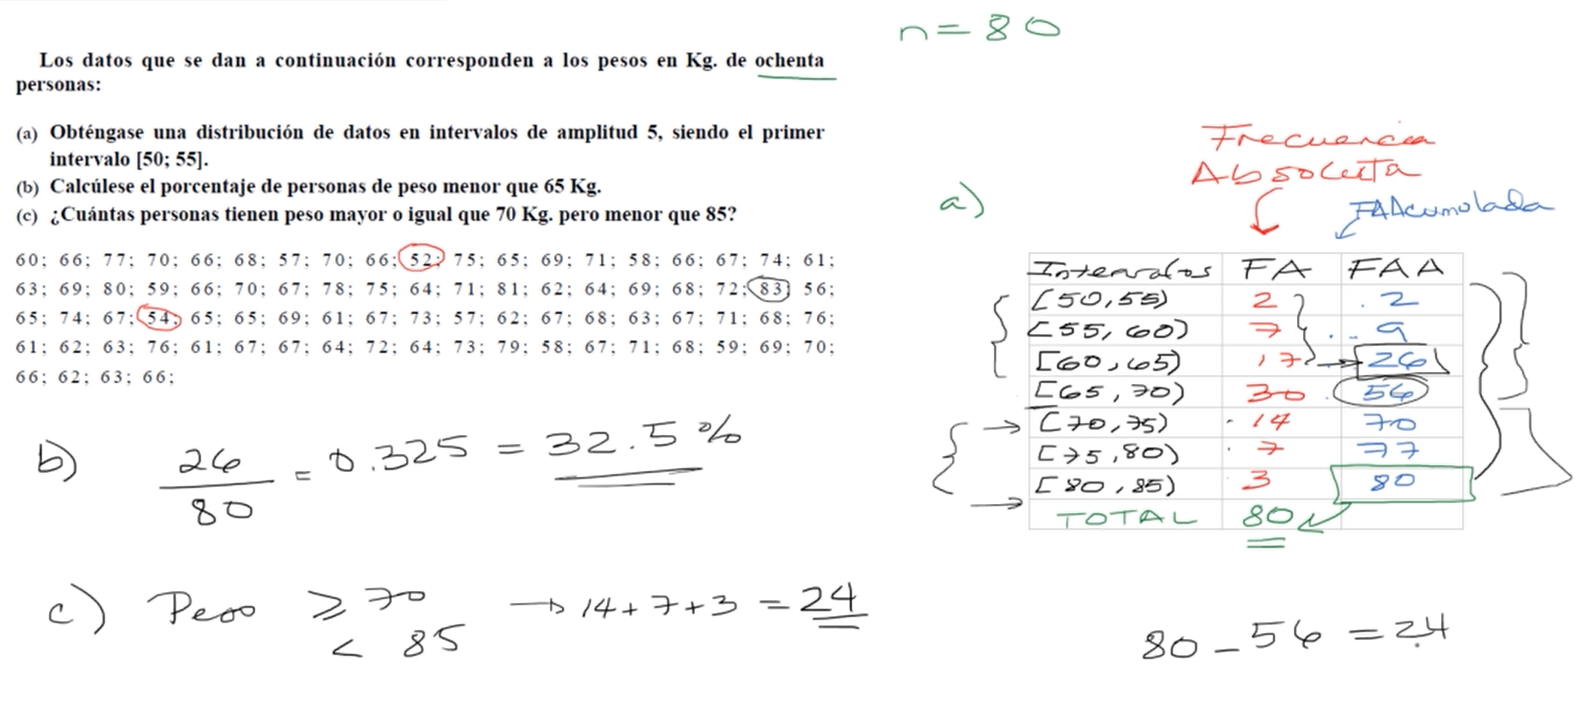 n = 80
Los datos que se dan a continuación corresponden a los pesos en Kg. de ochenta
personas:
(a) Obténgase una distribución de datos en intervalos de amplitud 5, siendo el primer
intervalo [50; 55].
(b) Calcúlese el porcentaje de personas de peso menor que 65 Kg.
(c) ¿Cuántas personas tienen peso mayor o igual que 70 Kg. pero menor que 85?
60; 66; 77; 70; 66; 68; 57; 70; 66; 52; 75; 65; 69; 71; 58; 66; 67; 74; 61;
63; 69; 80; 59; 66; 70; 67; 78; 75; 64; 71; 81; 62; 64; 69; 68; 72; 83; 56;
65; 74; 67; 54; 65; 65; 69; 61; 67; 73; 57; 62; 67; 68; 63; 67; 71; 68; 76;
61; 62; 63; 76; 61; 67; 67; 64; 72; 64; 73; 79; 58; 67; 71; 68; 59; 69; 70;
66; 62; 63; 66;
Frecuencia
Absoluta
a)
FAAcumulada
Intervalos FA FAA
[50,55) 2 2
[55,60) 7 9
[60,65) 17 26
[65,70) 30 56
[70,75) 14 70
[75,80) 7 77
[80,85) 3 80
TOTAL 80
b) 26/80 = 0.325 = 32.5%
c) Peso ≥ 70 → 14+7+3 = 24
< 85
80 - 56 = 24